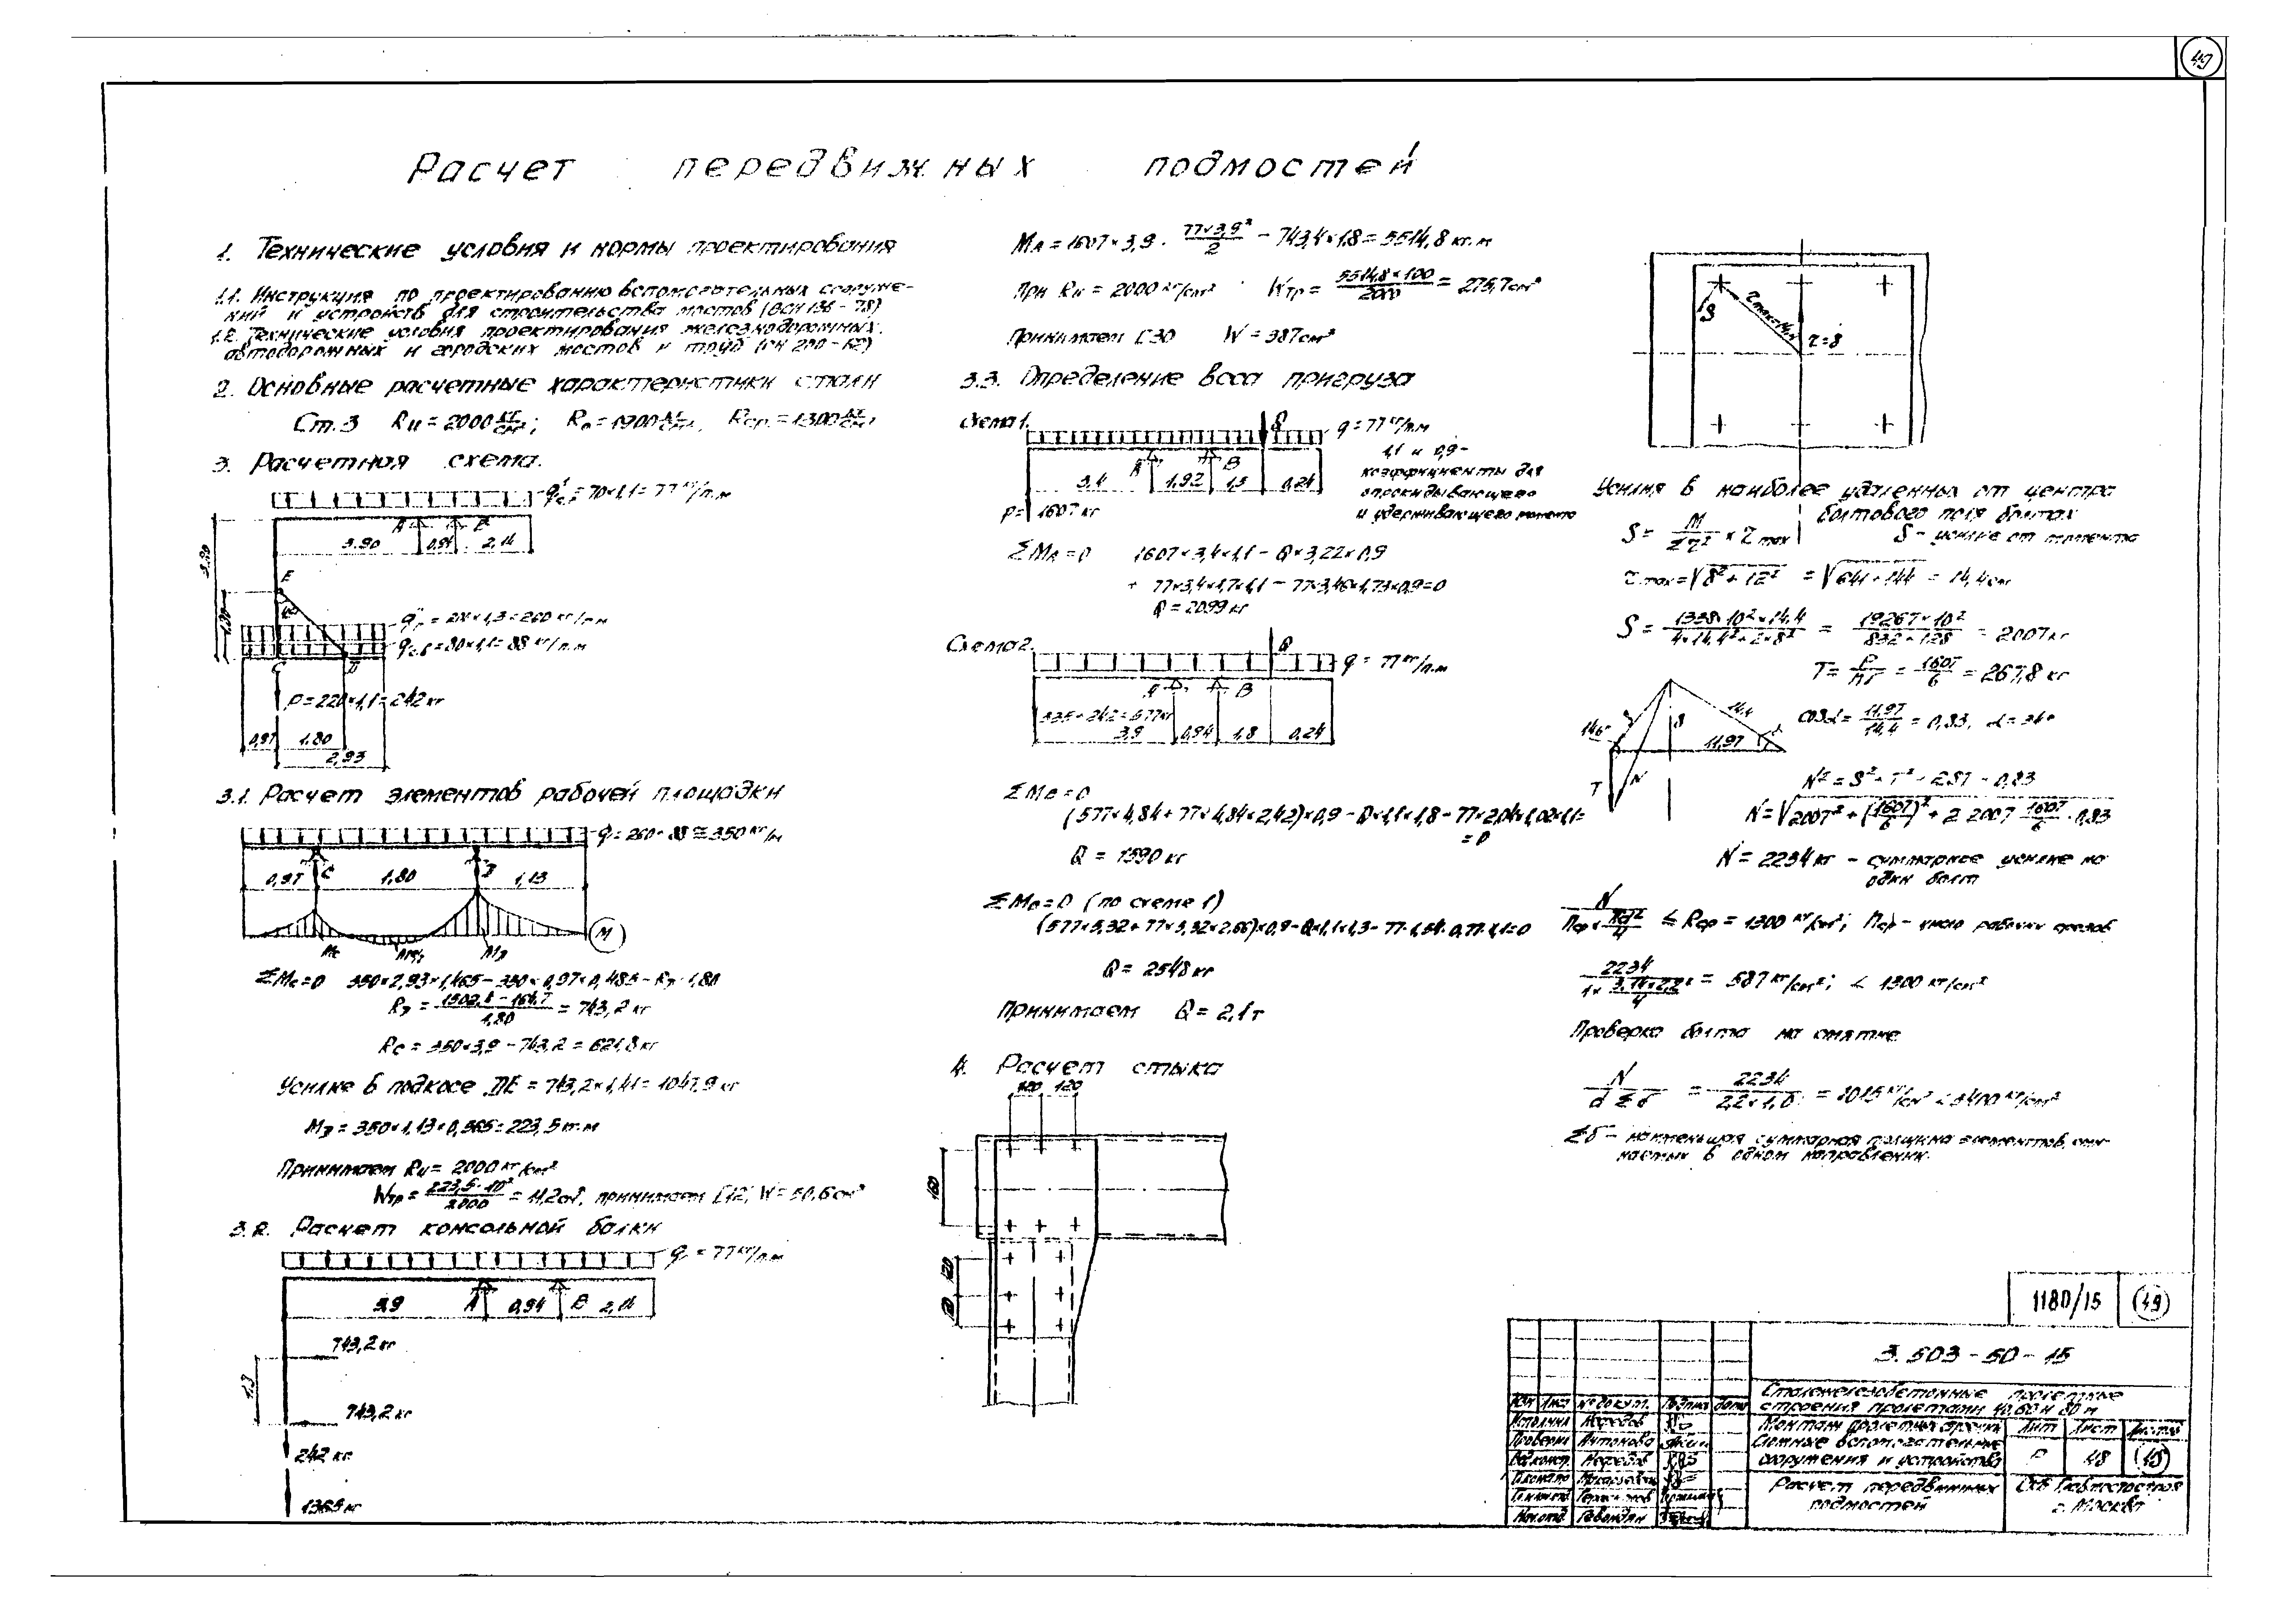 49
Расчет передвижных подмостей
1. Технические условия и нормы проектирования
1.1. Инструкция по проектированию вспомогательных сооруже-
ний и устройств для строительства мостов (ВСН 136-78)
1.2. Технические условия проектирования железнодорожных,
автодорожных и городских мостов и труб (СН 200-62)
2. Основные расчетные характеристики стали
Ст.3 Rи=2000 кг/см²; Rо=1900 кг/см²; Rср.=1300 кг/см²
3. Расчетная схема.
=70×1,1=77 кг/п.м
А В
3.90 0,94 2,14
3,90
Е
1,80
45°
=200×1,3=260 кг/п.м
qс.в=80×1,1=88 кг/п.м
С D
P=220×1,1=242 кг
0,97 1.80
2,93
3.1. Расчет элементов рабочей площадки
q=260+88≅350 кг/м
0,97 С 1,80 1,13
М
ΣMс=0 350×2,93×1,465-350×0,97×0,485-R 1,80
= 1502,4-164,7 / 1,80 = 743,2 кг
Rс=350×3,9-743,2=621,8 кг
Усилие в подкосе DE=743,2×1,41=1047,9 кг
=350×1,13×0,565=223,5 кг.м
Принимаем Rи=2000 кг/см²
Wтр= 223,5·10² / 2000 =11,2см³, принимаем [12, W=50,6см³
3.2. Расчет консольной балки
q=77 кг/п.м
3,9 А 0,94 В 2,14
743,2 кг
1,9
743,2 кг
242 кг
1365 кг
MА=1607×3,9· 77×3,9² / 2 -743,4×1,8=5514,8 кг.м
При Rи=2000 кг/см² Wтр= 5514,8×100 / 2000 =275,7см³
Принимаем [30 W=387см³
3.3. Определение веса пригруза
Схема 1.
Q
q=77 кг/п.м
А В
3,4 1,92 1,3 0,24
P= 1607 кг
1,1 и 0,9-
коэффициенты для
опрокидывающего
и удерживающего момента
ΣMА=0 1607×3,4×1,1-Q×3,22×0,9
+ 77×3,4×1,7×1,1-77×3,46×1,73×0,9=0
Q=2099 кг
Схема 2.
Q
q=77 кг/п.м
А В
335+242=577кг
3,9 0,94 1,8 0,24
ΣMв=0
(577×4,84+77×4,84×2,42)×0,9-Q×1,1×1,8-77×2,04×1,02×1,1=
=0
Q=1590 кг
ΣMв=0 (по схеме 1)
(577×5,32+77×5,32×2,66)×0,9-Q×1,1×1,3-77·1,54·0,77·1,1=0
Q=2548 кг
Принимаем Q=2,1т
4. Расчет стыка
120 120
160
120
S
τmax=14,4
τ=8
Усилия в наиболее удаленных от центра
болтового поля болтах
S= M / Στ² ×τmax S- усилие от момента
τmax=√8²+12² =√64+144 =14,4см
S= 1338×10²×14,4 / 4×14,4²+2×8² = 19267×10² / 832+128 =2007кг
T= P / nб = 1607 / 6 =267,8 кг
14,6 S 8 14,4
11,97
T N
cosα= 11,97 / 14,4 =0,83, α=34°
N²=S²+T²-2ST-0,83
N=√2007²+(1607/6)²+2 2007 1607/6 ·0,83
N=2234кг - суммарное усилие на
один болт
N / nср× πd²/4 ≤ Rср=1300 кг/см²; nср- число рабочих срезов
2234 / 1× 3,14×2,2²/4 =587 кг/см²; < 1300 кг/см²
Проверка болта на смятие
N / dΣδ = 2234 / 2,2×1,0 =1015 кг/см² < 3400 кг/см²
Σδ- наименьшая суммарная толщина элементов, сми-
наемых в одном направлении.
1180/15 49
3.503-50-15
Сталежелезобетонные пролетные
строения пролетами 40,60 и 80 м
Изм Лист № докум. Подпись Дата
Монтаж пролетных строений
Сложные вспомогательные
сооружения и устройства
Лит Лист Листов
Р 48
Исполнил Нефедов
Проверил Антонова
Вед.констр. Нефедов
Нач.отд.
Расчет передвижных
подмостей
СКБ Главмостостроя
г. Москва